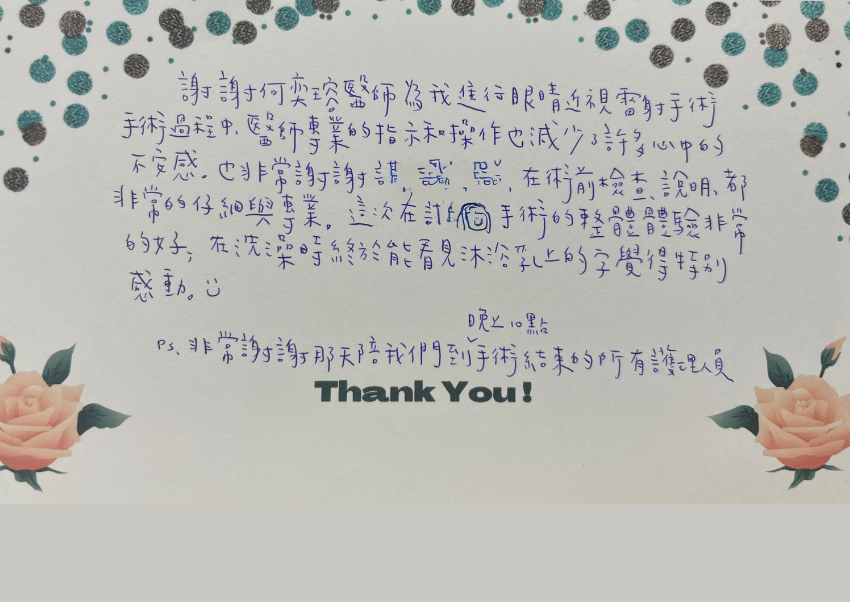 謝謝何奕瑢醫師為我進行眼睛近視雷射手術
手術過程中,醫師專業的指示和操作也減少了許多心中的
不安感。也非常謝謝諶, 在術前檢查、說明、都
非常的仔細與專業。這次在 手術的整體體驗非常
的好,在洗澡時終於能看見沐浴乳上的字覺得特別
感動。
晚上10點
Ps、非常謝謝那天陪我們到手術結束的所有護理人員
Thank You!